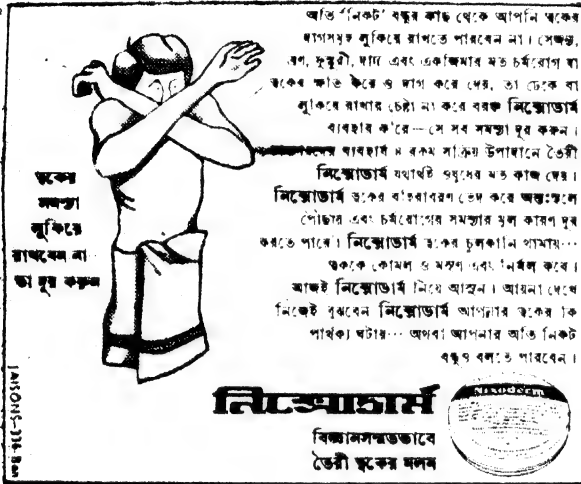 অতি 'নিকট' বন্ধুর কাছ থেকে আপনি ত্বকের
দাগসমূহ লুকিয়ে রাখতে পারবেন না। সেজন্য,
ব্রণ, ফুস্কুরী, দাদ এবং একজিমার মত চর্মরোগ যা
ত্বকের ক্ষতি করে ও দাগ করে দেয়, তা ঢেকে বা
লুকিয়ে রাখার চেষ্টা না করে বরঞ্চ নিক্সোডার্ম
ব্যবহার ক'রে—সে সব সমস্যা দূর করুন।
ব্যবহার্য ৪ রকম সক্রিয় উপাদানে তৈরী
নিক্সোডার্ম যথার্থই ওষুধের মত কাজ দেয়।
নিক্সোডার্ম ত্বকের বহিরাবরণ ভেদ করে অন্তঃস্থলে
পৌঁছায় এবং চর্মরোগের সমস্যার মূল কারণ দূর
করতে পারে। নিক্সোডার্ম ত্বকের চুলকানি থামায়···
ত্বককে কোমল ও মসৃণ এবং নির্মল করে।
আজই নিক্সোডার্ম নিয়ে আসুন। আয়না দেখে
নিজেই বুঝবেন নিক্সোডার্ম আপনার ত্বকের কি
পার্থক্য ঘটায়··· অথবা আপনার অতি নিকট
বন্ধুও বলতে পারবেন।
ত্বকের
সমস্যা
লুকিয়ে
রাখবেন না
তা দূর করুন
নিক্সোডার্ম
বিজ্ঞানসম্মতভাবে
তৈরী ত্বকের মলম
Nixoderm
JAISONS-336-Ben